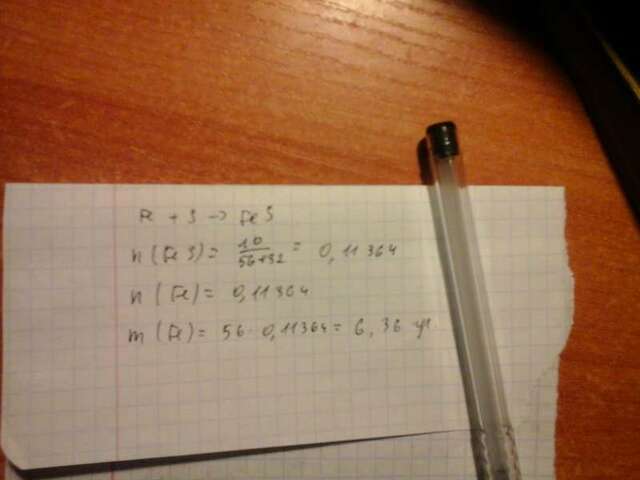 Fe + S → FeS
n (FeS) = 10/56+32 = 0,11364
n (Fe) = 0,11364
m (Fe) = 56 · 0,11364 = 6,36 гр